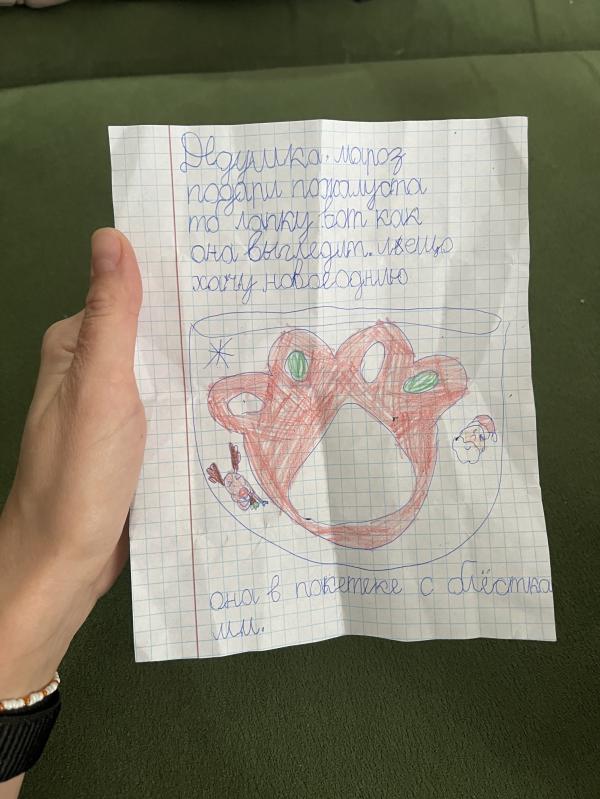 Дедушка. мароз
подари пожалуста
то лапку вот как
она выгледит. и ещо
хочу новогоднюю
она в покетеке с блёстка
ми.